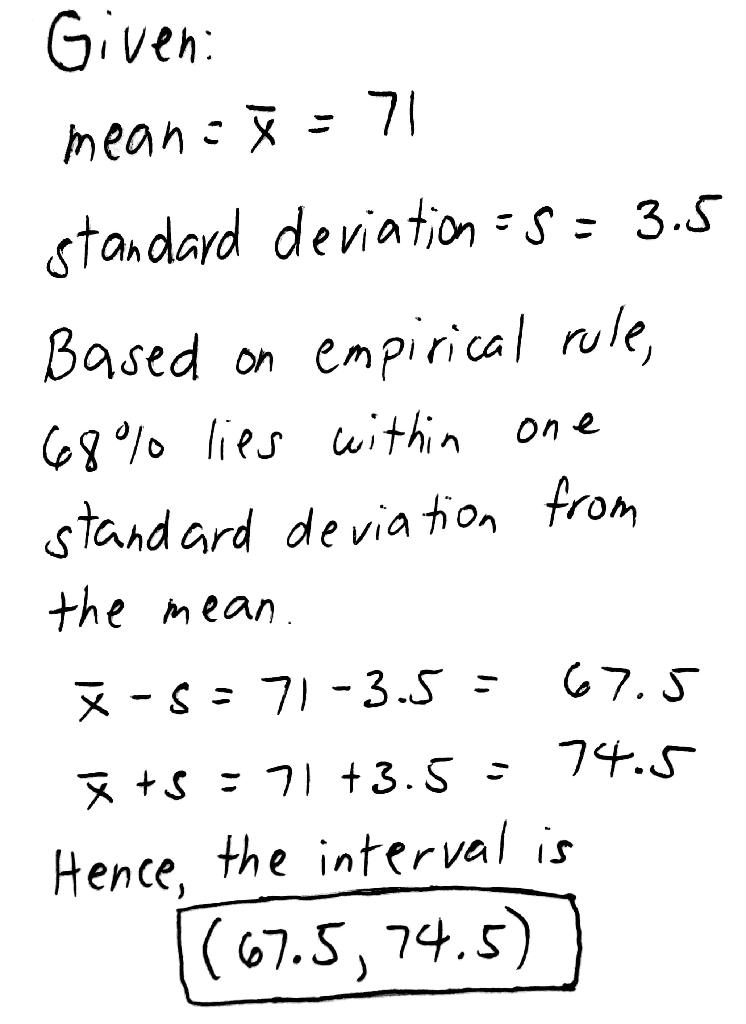 Given:
mean = x̄ = 71
standard deviation = s = 3.5
Based on empirical rule,
68% lies within one
standard deviation from
the mean.
x̄ - s = 71 - 3.5 = 67.5
x̄ + s = 71 + 3.5 = 74.5
Hence, the interval is
(67.5, 74.5)